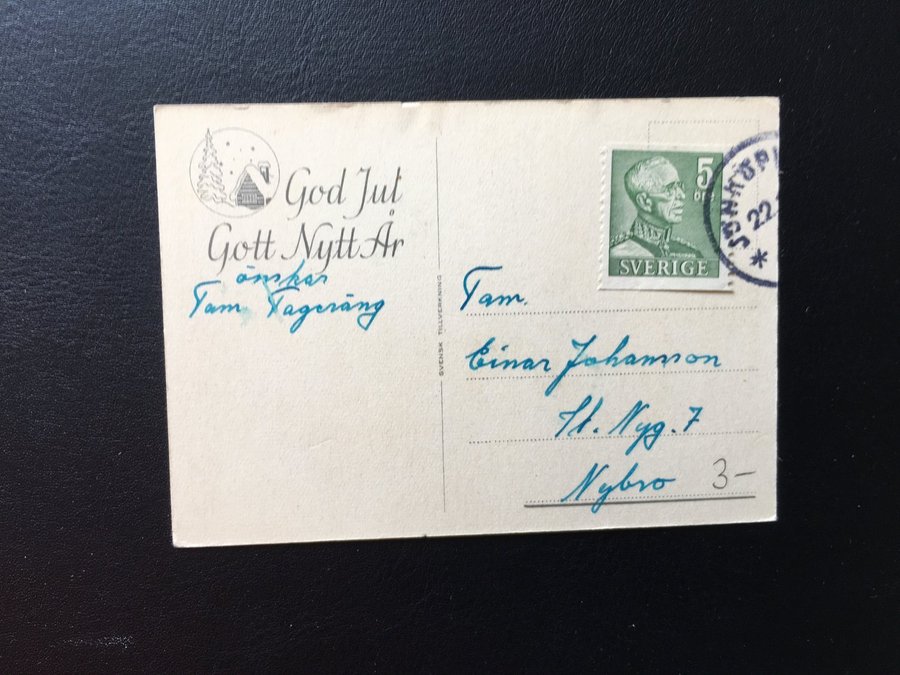 God Jul
Gott Nytt År
önskar
Fam. Fageräng
SVENSK TILLVERKNING
5
ÖRE
SVERIGE
JÖNKÖPI
22.
Fam.
Einar Johansson
St. Nyg. 7
Nybro
3-